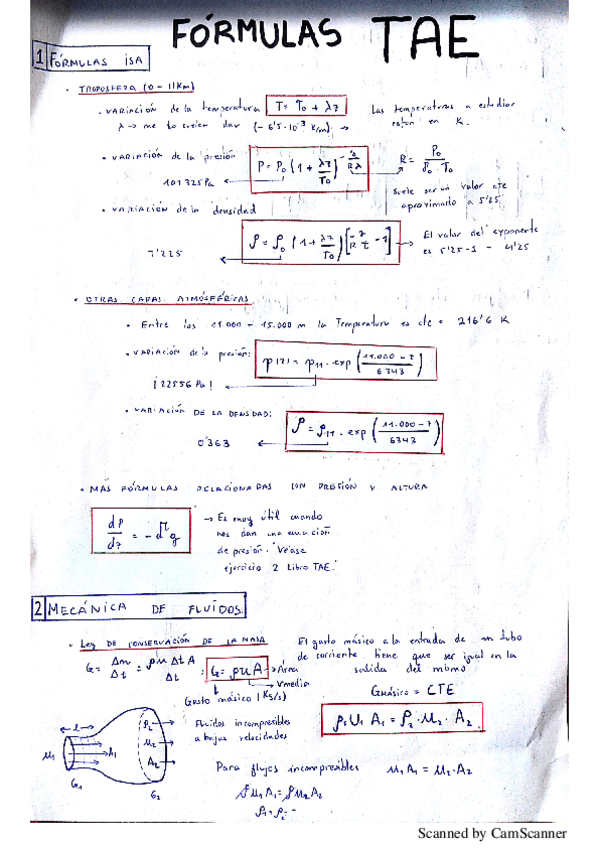 FÓRMULAS TAE
1 FÓRMULAS ISA
• TROPOSFERA (0 - 11Km)
• VARIACIÓN de la temperatura T = T₀ + λz Las temperaturas a estudiar
λ → me lo suelen dar (-6'5·10⁻³ K/m) → estan en K.
• VARIACIÓN de la presión P = P₀ (1 + λz/T₀)^(-g/Rλ) → R = P₀/ρ₀·T₀
101325 Pa ← Suele ser un valor cte
aproximado a 5'25
• VARIACIÓN de la densidad
ρ = ρ₀ (1 + λz/T₀) → El valor del exponente
1'225 ← es 5'25-1 = 4'25
• OTRAS CAPAS ATMÓSFÉRICAS
• Entre los 11.000 - 15.000 m la Temperatura es cte = 216'6 K
• VARIACIÓN de la presión: p(z) = p₁₁ · exp (11.000 - z / 6343)
¡22556 Pa! ←
• VARIACIÓN DE LA DENSIDAD: ρ = ρ₁₁ · exp (11.000 - z / 6343)
0'363 ←
• MÁS FÓRMULAS RELACIONADAS CON PRESIÓN Y ALTURA
dP/dz = - g → Es muy útil cuando
nos dan una ecuación
de presión. "Véase
ejercicio 2 Libro TAE."
2 MECÁNICA DE FLUÍDOS.
• Ley DE CONSERVACIÓN DE LA MASA El gasto másico a la entrada de un tubo
de corriente tiene que ser igual en la
G = Δm/Δt = ρuΔtA/Δt = G = ρuA → Área salida del mismo
→ Vmedia
Gasto másico (Kg/s) Gmásico = CTE
Fluidos incompresibles ρ₁U₁A₁ = ρ₂·u₂·A₂.
a bajas velocidades
← l → ρ₂
u₁ A₁ u₂
A₂
G₁ G₂
Para flujos incompresibles u₁A₁ = u₂·A₂
ρu₁A₁ = ρu₂A₂
ρ₁ = ρ₂ =
Scanned by CamScanner